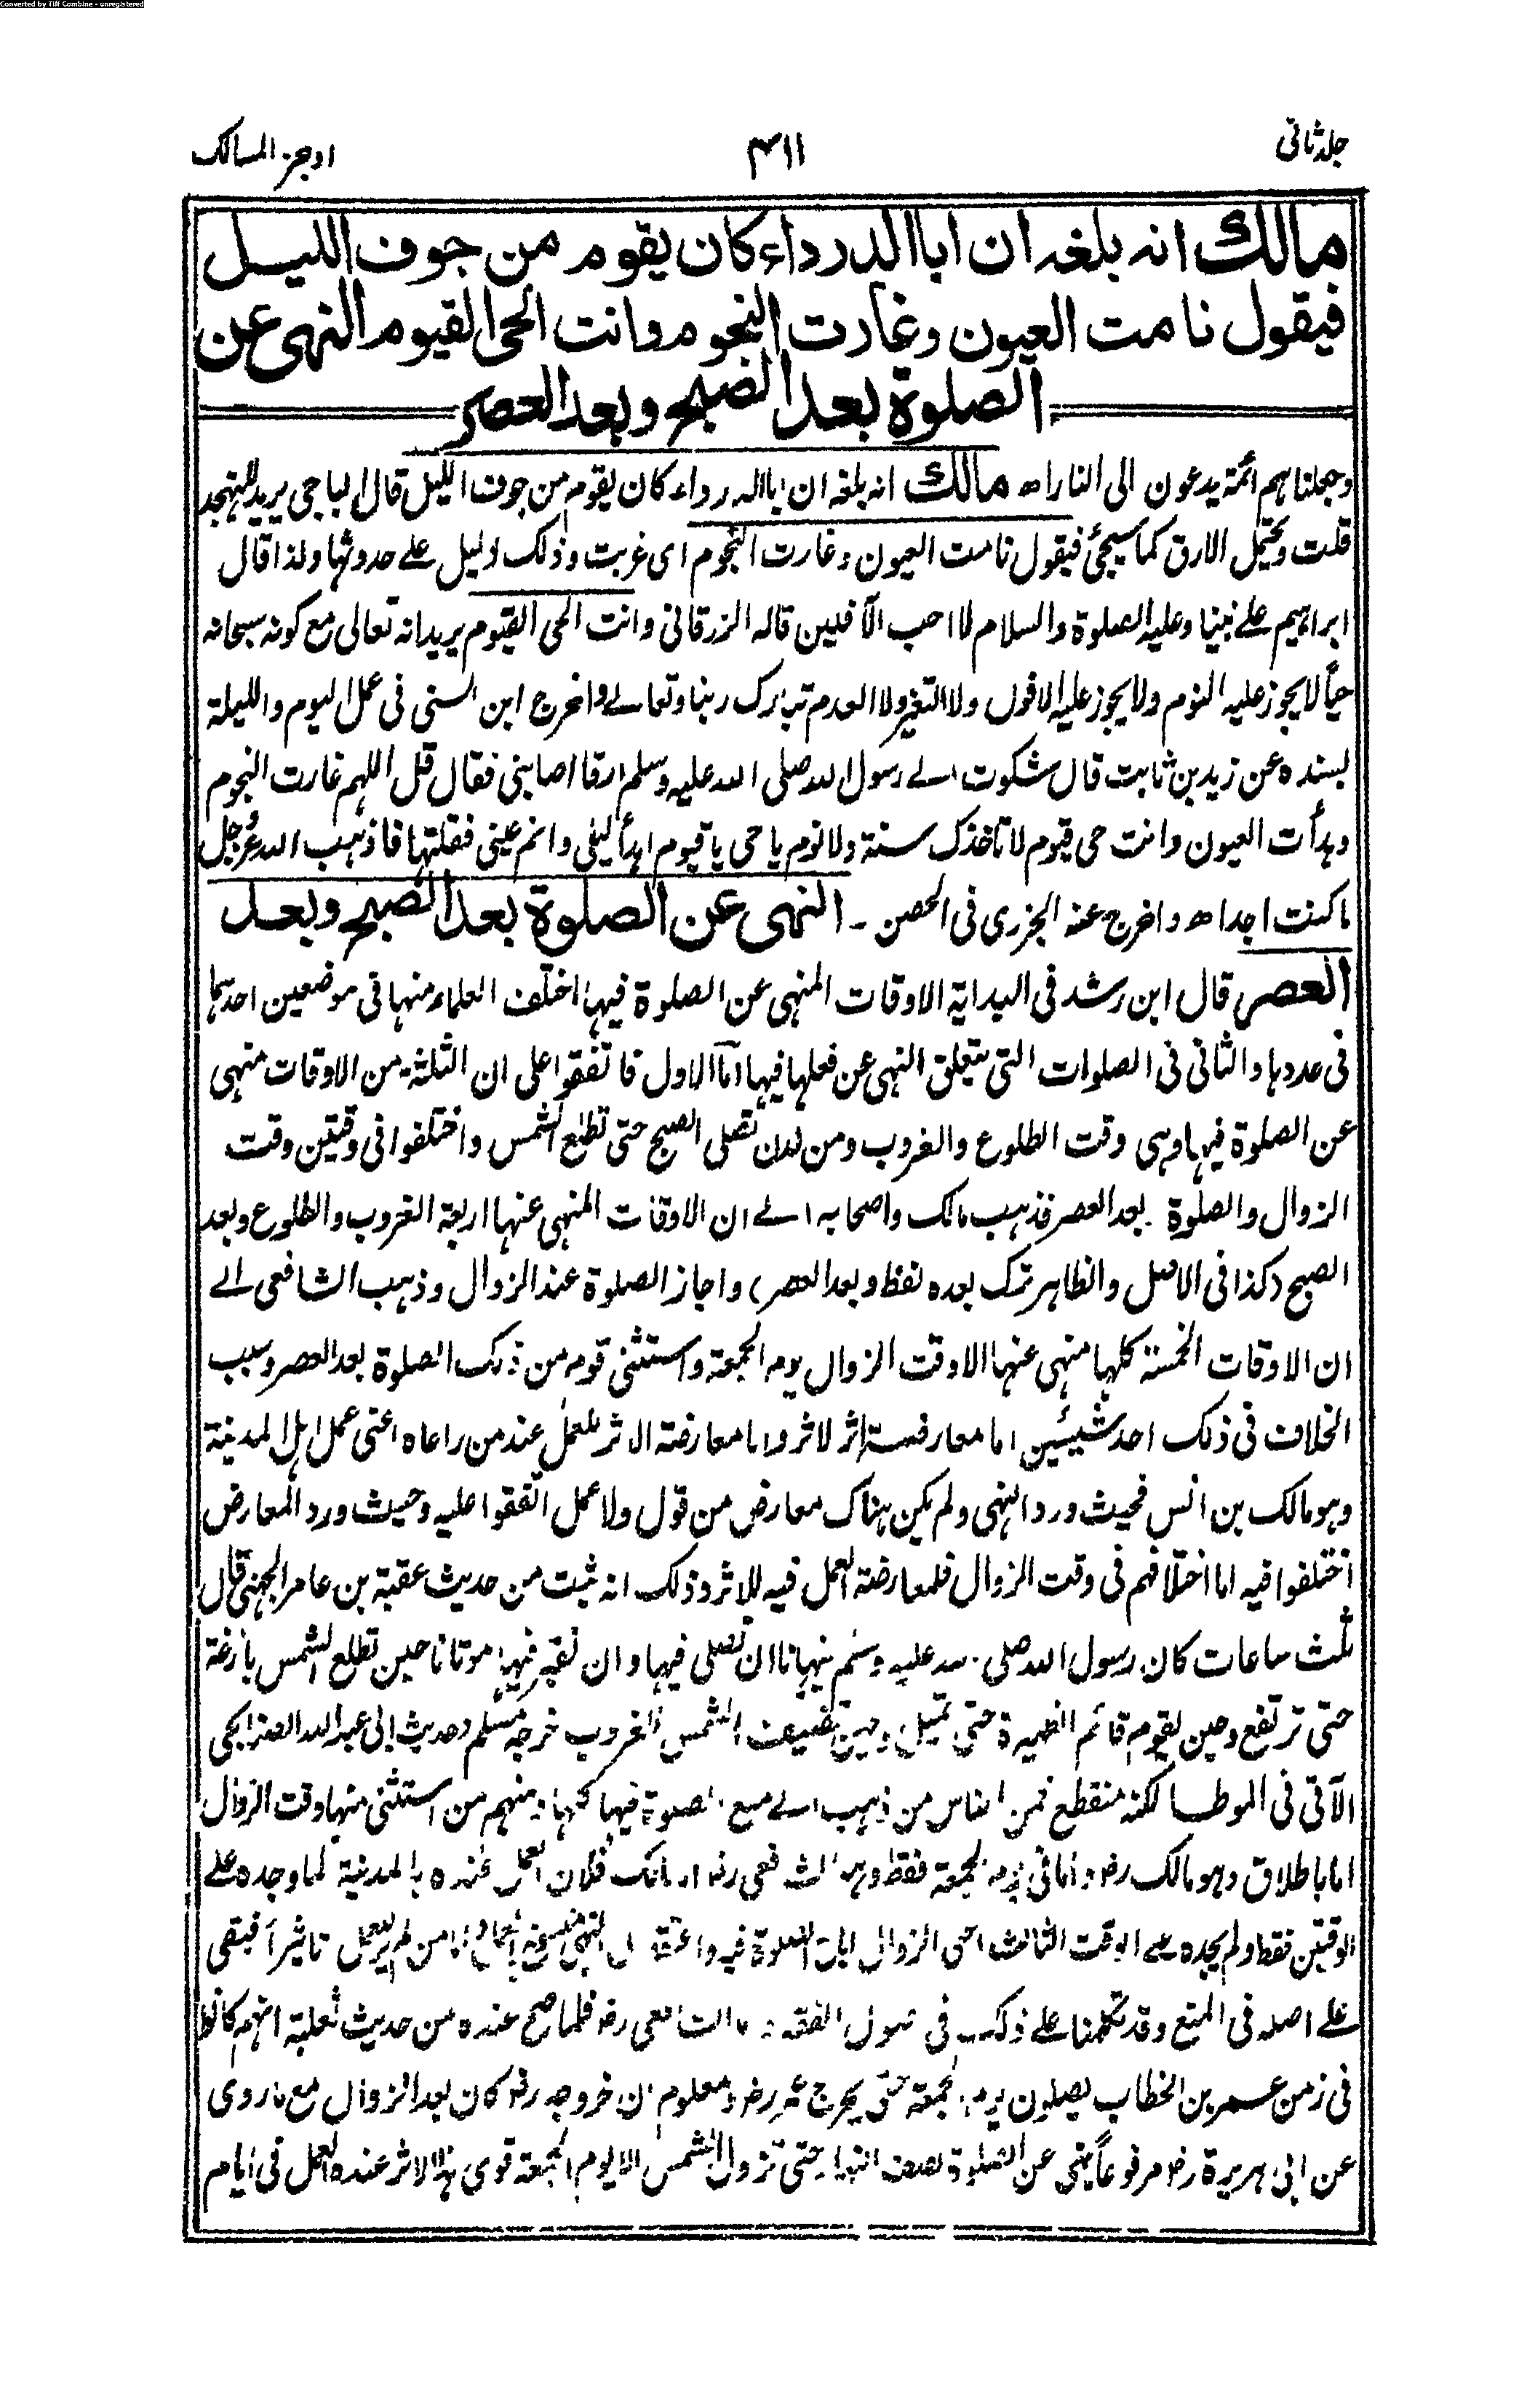 Converted by Tiff Combine - unregistered
جلد ثانی
۳۱۱
اوجز المسالک
مالك انه بلغه ان ابا الدرداء كان يقوم من جوف الليل
فيقول نامت العيون وغارت النجوم وانت الحي القيوم النهى عن
الصلوة بعد الصبح وبعد العصر
وجعلناهم ائمة يدعون الى النار اھ مالك انه بلغه ان ابا الدرداء كان يقوم من جوف الليل قال الباجي يريد للتهجد
قلت ويحتمل الارق كما سيجئ فيقول نامت العيون وغارت النجوم اى غربت وذلك دليل على حدوثها ولذا قال
ابراهيم على نبينا وعليه الصلوة والسلام لا احب الآفلين قاله الزرقاني وانت الحي القيوم يريد انه تعالى مع كونه سبحانه
حيا لا يجوز عليه النوم ولا يجوز عليه الافول ولا التغير ولا العدم تبارك ربنا وتعالى واخرج ابن السني في عمل اليوم والليلة
بسنده عن زيد بن ثابت قال شكوت الى رسول الله صلى الله عليه وسلم ارقا اصابني فقال قل اللهم غارت النجوم
وهدأت العيون وانت حي قيوم لا تاخذك سنة ولا نوم يا حي يا قيوم اهدأ ليلي وانم عيني فقلتها فاذهب الله عز وجل
ما كنت اجد اھ واخرج عنه الجزرى في الحصن ـ النهى عن الصلوة بعد الصبح وبعد
العصر قال ابن رشد في البداية الاوقات المنهى عن الصلوة فيها اختلف العلماء منها في موضعين احدهما
في عددها والثاني في الصلوات التي يتعلق النهى عن فعلها فيها اما الاول فاتفقوا على ان الثلثة من الاوقات منهى
عن الصلوة فيها وهى وقت الطلوع والغروب ومن لدن تصلى الصبح حتى تطلع الشمس واختلفوا في وقتين وقت
الزوال والصلوة بعد العصر فذهب مالك واصحابه الى ان الاوقات المنهى عنها اربعة الغروب والطلوع وبعد
الصبح (كذا في الاصل والظاهر ترك بعده لفظ وبعد العصر) واجاز الصلوة عند الزوال وذهب الشافعي الى
ان الاوقات الخمسة كلها منهى عنها الا وقت الزوال يوم الجمعة واستثنى قوم من ذلك الصلوة بعد العصر وسبب
الخلاف في ذلك احد شيئين اما معارضة اثر لاثر واما معارضة الاثر للعمل عند من راعاه اعنى عمل اهل المدينة
وهو مالك بن انس فحيث ورد النهى ولم يكن هناك معارض من قول ولا عمل اتفقوا عليه وحيث ورد المعارض
اختلفوا فيه اما اختلافهم في وقت الزوال فلمعارضة العمل فيه للاثر وذلك انه ثبت من حديث عقبة بن عامر الجهني قال
ثلث ساعات كان رسول الله صلى الله عليه وسلم ينهانا ان نصلى فيها وان نقبر فيها موتانا حين تطلع الشمس بازغة
حتى ترتفع وحين يقوم قائم الظهيرة حتى تميل وحين تضيف الشمس للغروب خرجه مسلم وحديث ابي عبد الله الصنابحي
الآتي في الموطا لكنه منقطع فمن الناس من ذهب الى منع الصلوة فيها كلها ومنهم من استثنى منها وقت الزوال
اما باطلاق وهو مالك رض واما في يوم الجمعة فقط وهو الشافعي رض اما مالك فلان العمل عنده بالمدينة لما وجده على
الوقتين فقط ولم يجده على الوقت الثالث اعنى الزوال اباح الصلوة فيه واعتقد ان النهى منسوخ بالعمل واما من لم ير للعمل تاثيرا فبقى
على اصله في المنع وقد تكلمنا على ذلك في اصول الفقه واما الشافعي رض فلما صح عنده من حديث ثعلبة انهم كانوا
في زمن عمر بن الخطاب يصلون يوم الجمعة حتى يخرج عمر رض ومعلوم ان خروجه رض كان بعد الزوال مع ما روى
عن ابي هريرة رض مرفوعا نهى عن الصلوة نصف النهار حتى تزول الشمس الا يوم الجمعة قوى هذا الاثر عنده العمل في ايام